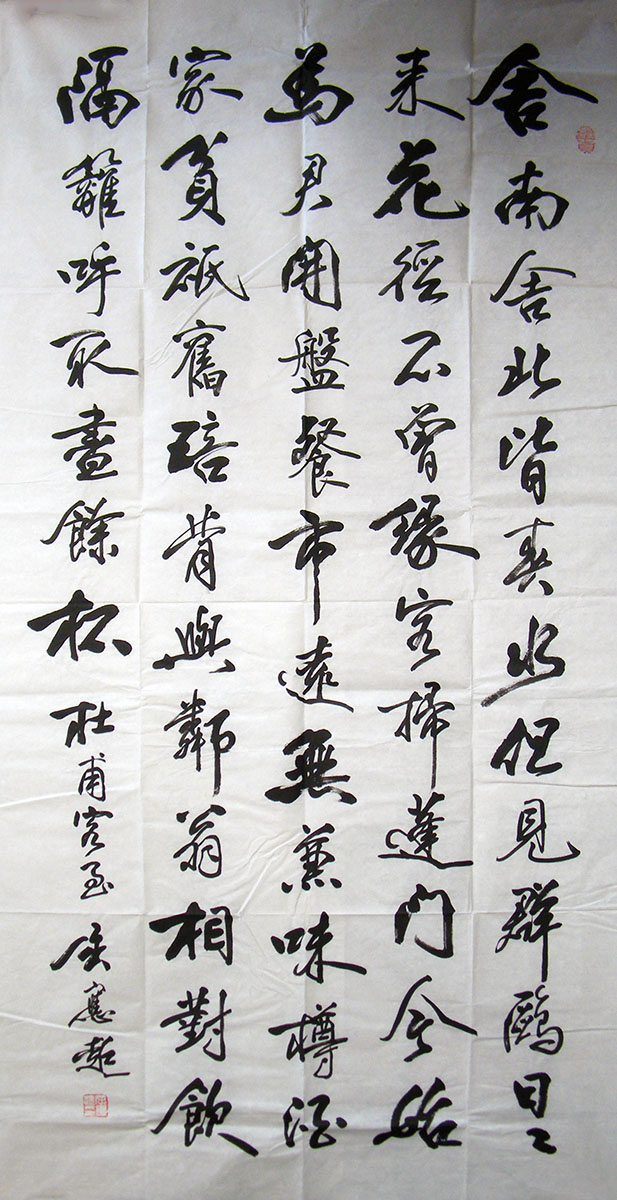 舍南舍北皆春水但見群鷗日〻
来花徑不曾緣客掃蓬門今始
為君開盤餐市遠無兼味樽酒
家貧祇舊醅肯與鄰翁相對飲
隔籬呼取盡餘杯 杜甫客至